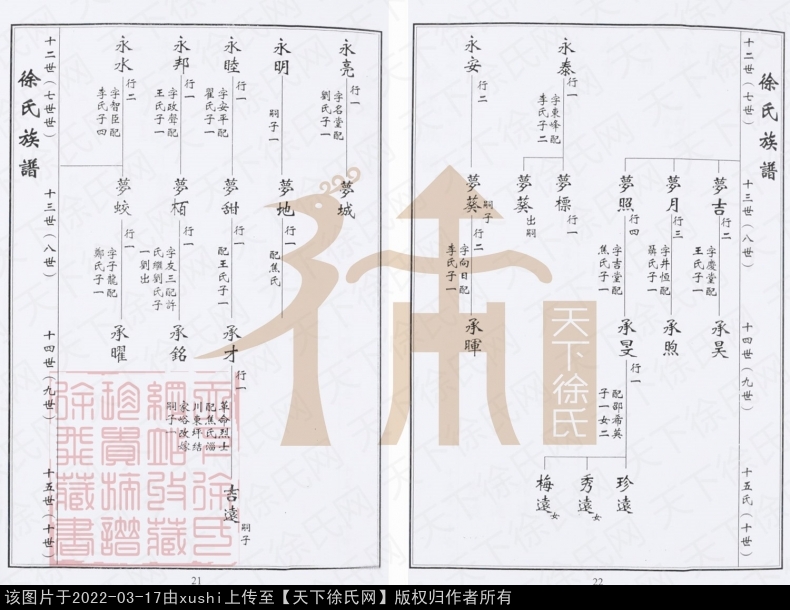 徐氏族譜
十二世（七世）
十三世（八世）
十四世（九世）
十五氏（十世）
夢吉
行二
字慶堂配
王氏子一
承昊
夢月
行三
字井恒配
聶氏子一
承煦
夢照
行四
字吉堂配
焦氏子一
承旻
行一
配邵希英
子一女二
珍遠
秀遠
女
梅遠
女
永泰
行一
字東峰配
李氏子二
夢標
行一
夢葵
出嗣
永安
行二
夢葵
嗣子
行二
字向日配
李氏子一
承暉
22
永亮
行一
字名堂配
劉氏子一
夢城
永明
嗣子一
夢地
行一
配焦氏
永睦
行一
字安平配
翟氏子一
夢甜
行一
配王氏子一
承才
行一
革命烈士
配焦氏淄
川東坪結
家峪改嫁
嗣子一
吉遠
嗣子
永邦
行一
字政聲配
王氏子一
夢栢
行一
字友三配許
氏繼劉氏子
一劉出
承銘
永水
行二
字智臣配
李氏子四
夢蛟
行一
字子龍配
鄭氏子一
承曜
徐氏族譜
十二世（七世）
十三世（八世）
十四世（九世）
十五世（十世）
21
天下徐氏
天下徐氏
網站收藏
珍貴族譜
徐氏藏書
该图片于2022-03-17由xushi上传至【天下徐氏网】版权归作者所有